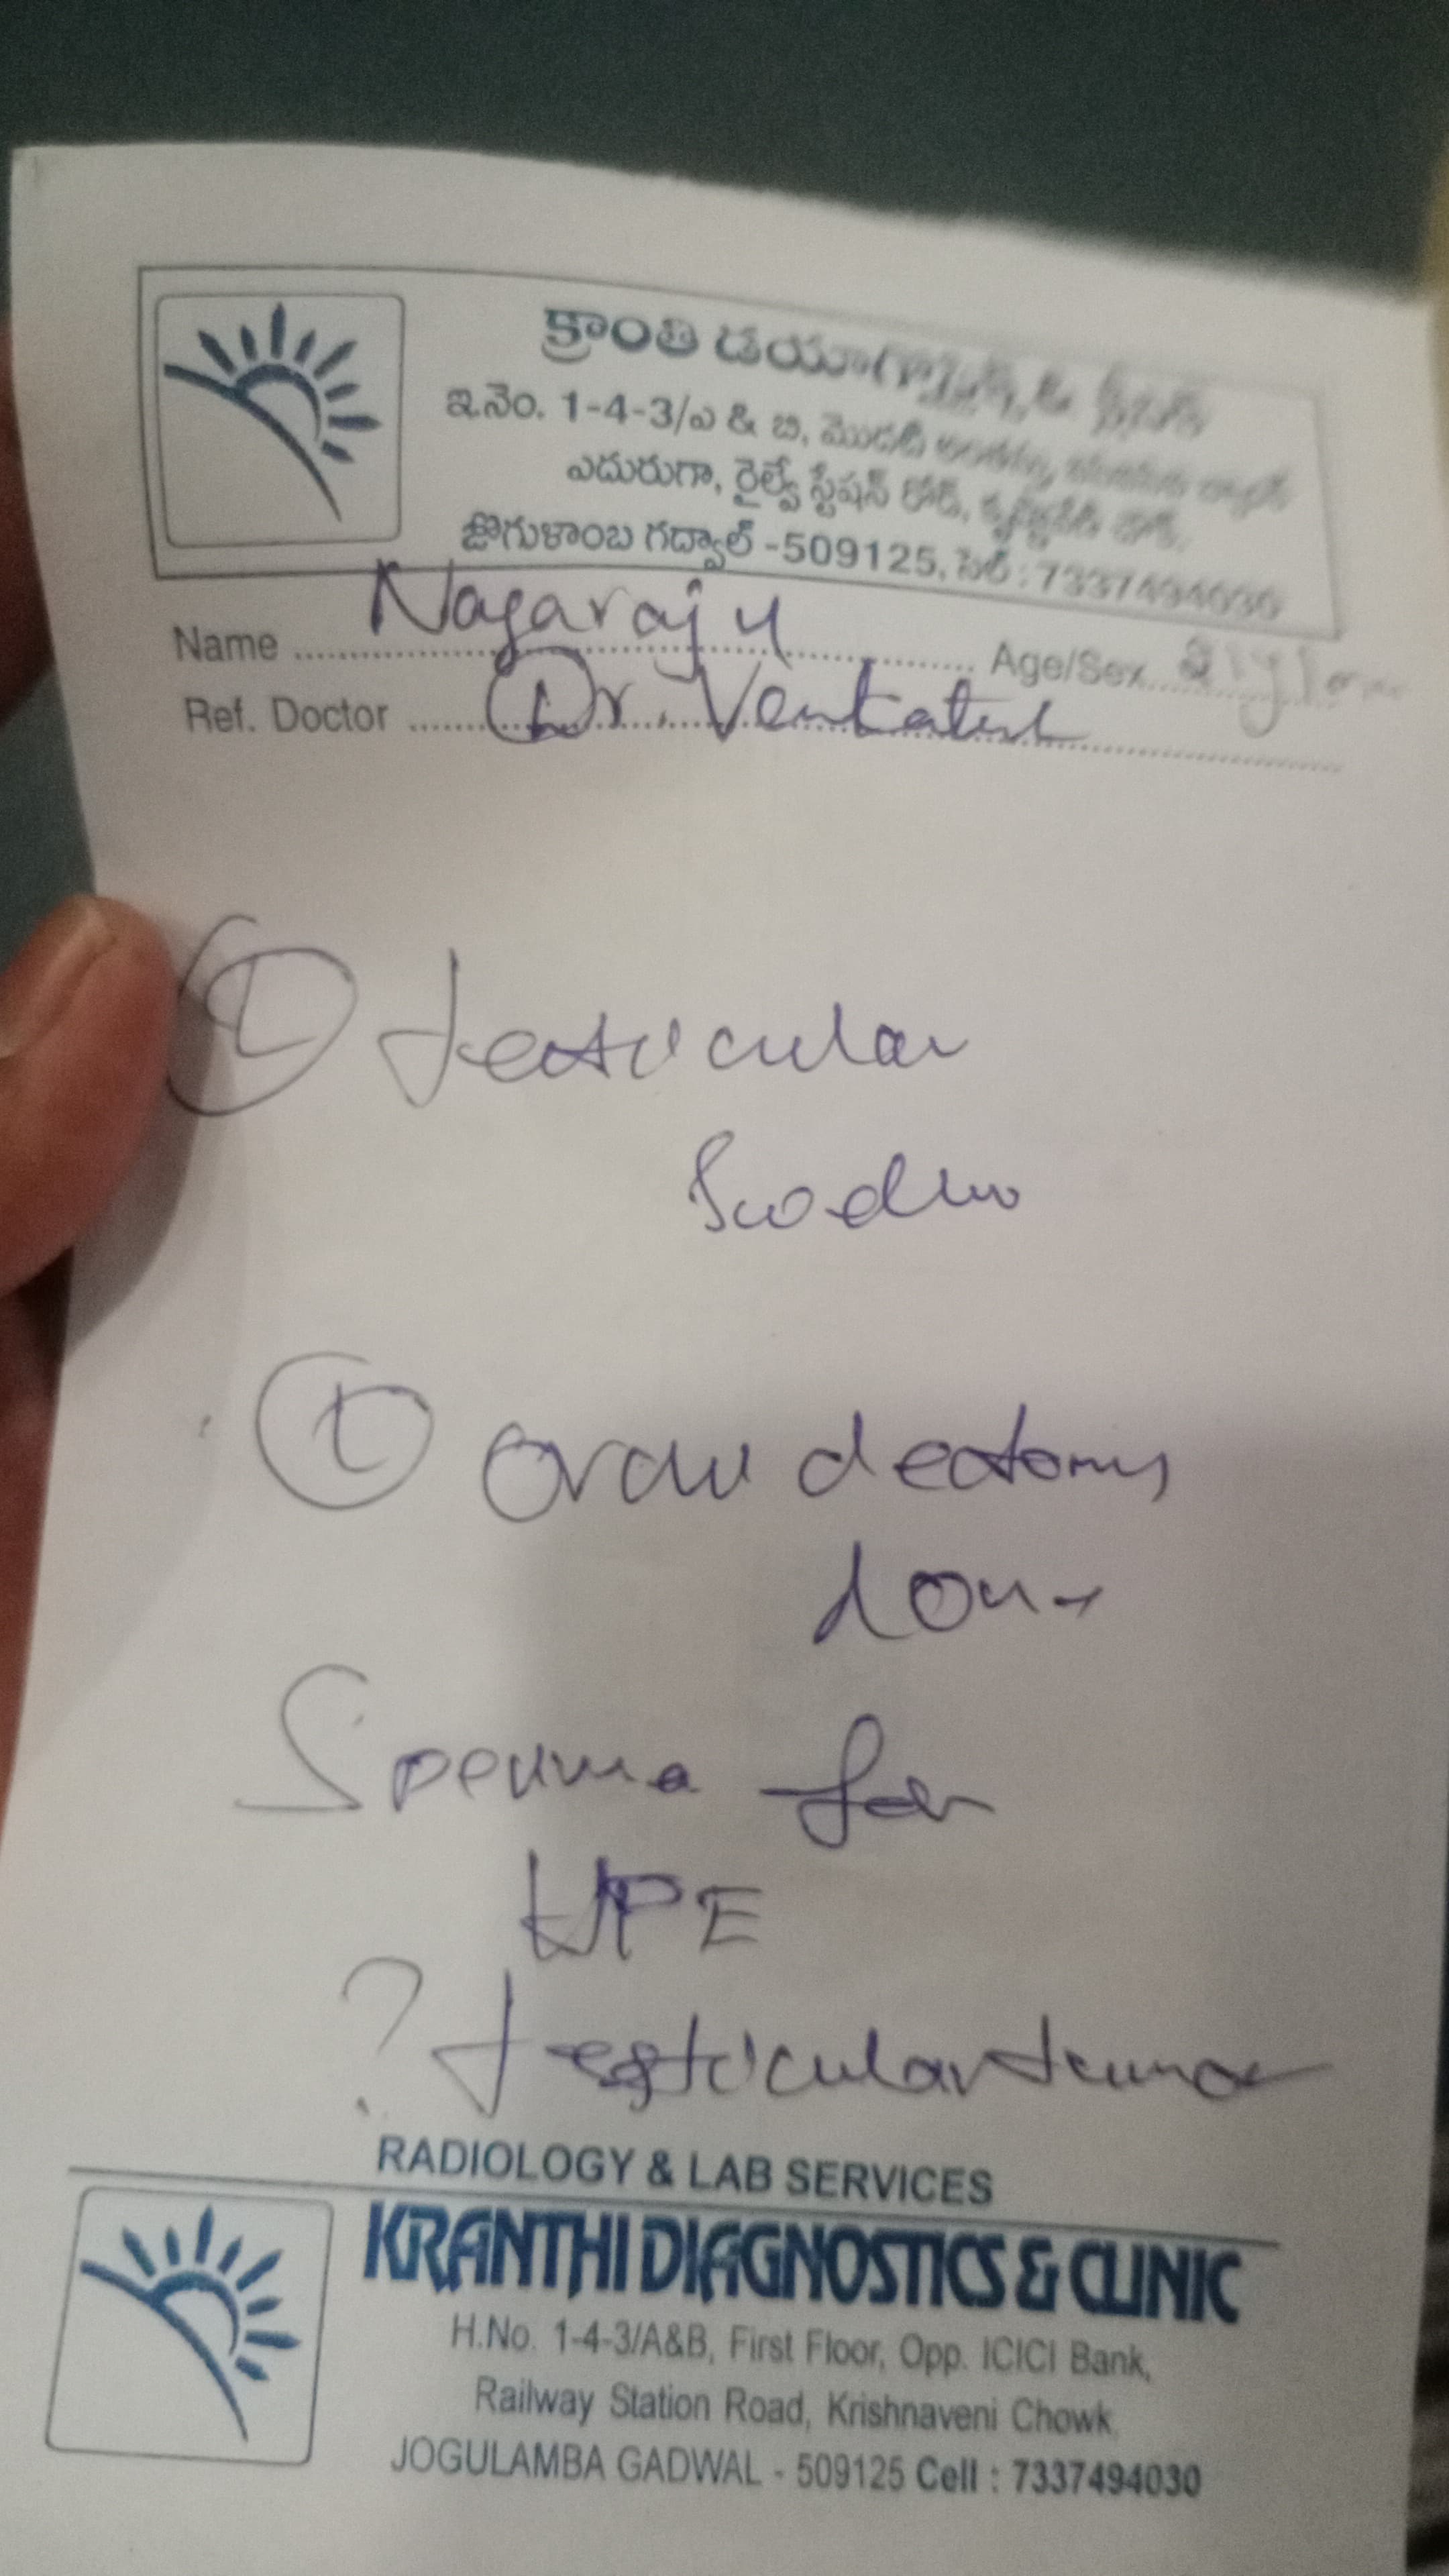 క్రాంతి డయాగ్నోస్టిక్స్ & క్లినిక్
ఇ.నెం. 1-4-3/ఎ & బి, మొదటి అంతస్తు,
ఎదురుగా, రైల్వే స్టేషన్ రోడ్, కృష్ణవేణి చౌక్,
జోగుళాంబ గద్వాల్ -509125, సెల్ : 7337494030
Name Nagaraju Age/Sex
Ref. Doctor Dr. Venkatesh
Ⓛ testicular
Ⓛ orchidectomy
done
for
HPE
? testicular tumor
RADIOLOGY & LAB SERVICES
KRANTHI DIAGNOSTICS & CLINIC
H.No. 1-4-3/A&B, First Floor, Opp. ICICI Bank,
Railway Station Road, Krishnaveni Chowk.
JOGULAMBA GADWAL - 509125 Cell : 7337494030